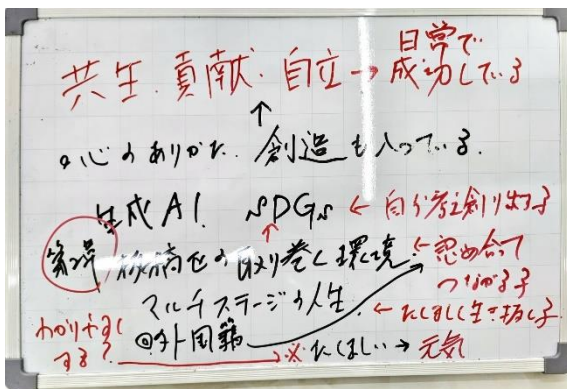 共生.貢献.自立→日常で
成功している
↑
心のありかた. 創造も入っている.
生成AI. SDGs ← 自分で考え創り出す子
↑
第2章 の取り巻く環境 ← 認め合って
つながる子
マルチステージの人生. ← たくましく生き抜く子.
わかりやすく
する? ◎外国籍
→※たくましい→元気